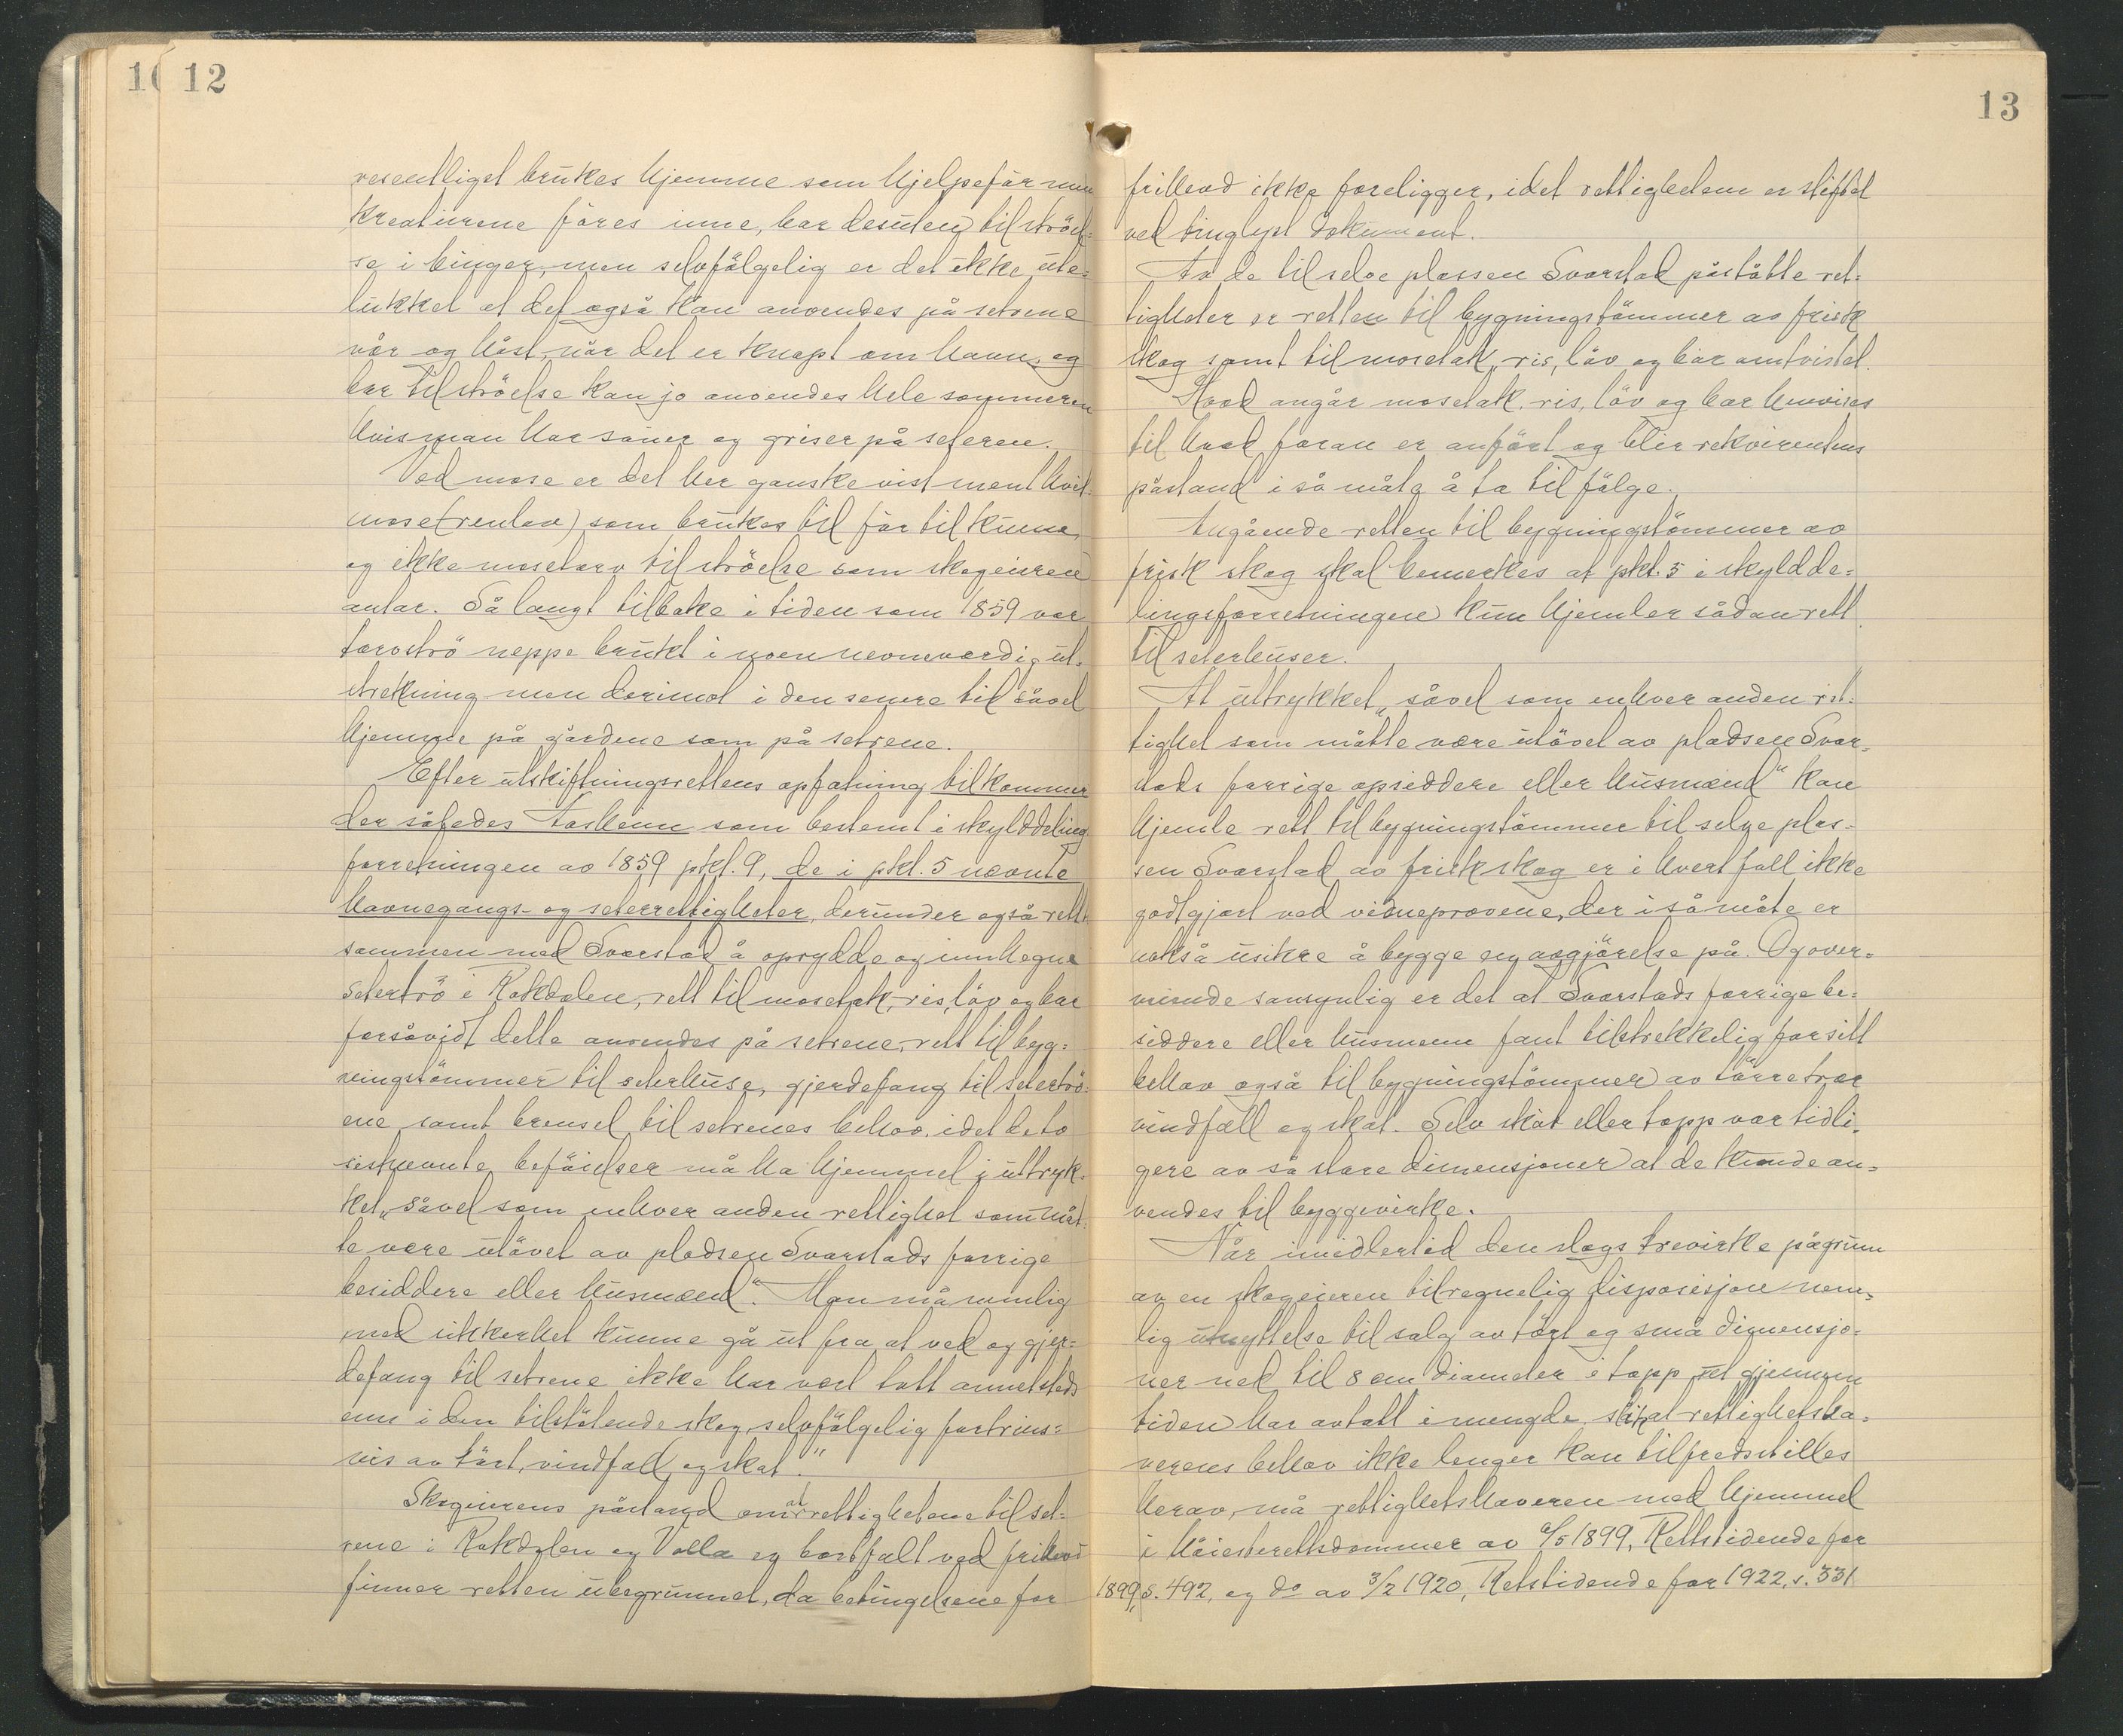 12
vesentligst brukes hjemme som hjelpefór når
kreaturene fóres inne, bar desuten til ströel-
se i binger, men selvfölgelig er det ikke ute-
lukket at det også kan anvendes på setrene
vår og höst når det er knapt om havn, og
bar til ströelse kan jo anvendes hele sommeren
hvis man har sauer og griser på seteren.
Ved mose er det her ganske visst ment hvit-
mose (renlav) som brukes til fór til kuene,
og ikke mosetorv til ströelse som skogeieren
antar. Så langt tilbake i tiden som 1859 var
torvströ neppe brukt i noen nevneverdig ut-
strekning men derimot i den senere tid såvel
hjemme på gårdene som på setrene.
Efter utskiftningsrettens opfatning tilkommer
der således Åsheim som bestemt i skylddeling
forretningen av 1859 pkt. 9, de i pkt. 5 nevnte
havnegangs- og seterrettigheter, derunder også rett
sammen med Svarstad å oprydde og innhegne
setertrö i Rokdalen, rett til mosetak, ris, löv og bar
forsåvidt dette anvendes på setrene, rett til byg-
ningstömmer til seterhuse, gjerdefang til setertrö-
ene samt brensel til setrenes behov, idet de to
sistnevnte beföielser må ha hjemmel i uttryk-
ket „såvel som enhver anden rettighet som måt-
te være utövet av pladsen Svarstads forrige
besiddere eller husmænd". Man må nemlig
med sikkerhet kunne gå ut fra at ved og gjer-
defang til setrene ikke har vært tatt annetsteds
enn i den tilstötende skog, selvfölgelig fortrins-
vis av tört, vindfall og skat."
Skogeierens påstand om at rettighetene til set-
rene i Rokdalen og Volla er bortfalt ved frihevd
finner retten ubegrunnet, da betingelsene for
13
frihevd ikke foreligger, idet rettigheten er stiftet
ved tinglyst dokument.
Av de til selve plassen Svarstad påståtte ret-
tigheter er retten til bygningstömmer av frisk
skog samt til mosetak, ris, löv og bar omtvistet.
Hvad angår mosetak, ris, löv og bar henvises
til hvad foran er anfört og blir rekvirentens
påstand i så måte å ta til fölge.
Angående retten til bygningstömmer av
frisk skog skal bemerkes at pkt. 5 i skyldde-
lingsforretningen kun hjemler sådan rett
til seterhuser.
At uttrykket „såvel som enhver anden ret-
tighet som måtte være utövet av pladsen Svar-
stads forrige opsiddere eller husmænd" kan
hjemle rett til bygningstömmer til selve plas-
sen Svarstad av frisk skog er i hvert fall ikke
godtgjort ved vidneprovene, der i så måte er
nokså usikre å bygge en avgjörelse på. Og over-
veiende sansynlig er det at Svarstads forrige be-
siddere eller husmenn fant tilstrekkelig for sitt
behov også til bygningstömmer av törre trær
vindfall og skat. Selv skat eller topp var tidli-
gere av så store dimensjoner at de kunde an-
vendes til byggevirke.
Når imidlertid den slags trevirke på grunn
av en skogeieren tilregnelig disposisjon nem-
lig utnyttelse til salg av tört og små dimensjo-
ner ned til 8 cm diameter i topp ut gjennem
tiden har avtatt i mengde, slik at rettighetsha-
verens behov ikke lenger kan tilfredsstilles
herav, må rettighetshaveren med hjemmel
i höiesterettsdommer av 6/5 1899, Rettstidende for
1899, s. 492, og do av 3/2 1920, Retstidende for 1922, s. 331